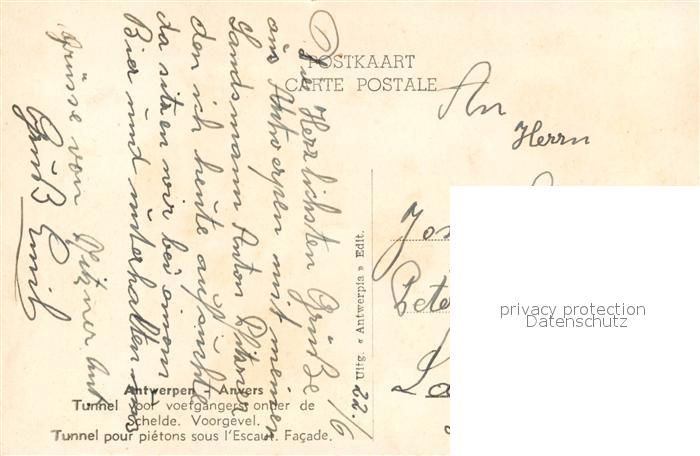 POSTKAART
CARTE POSTALE
Die Herzlichsten Grüße
aus Antwerpen mit meinem
Landsmann Anton Plitzner
den ich heute aufsuchte
da sitzen wir bei einem
Bier und unterhalten uns
Grüsse von Plitzner Ant
Gruß Emil
22. /6
Uitg. « Antwerpia » Edit.
An
Herrn
Jos
Pete
privacy protection
Datenschutz
Antwerpen - Anvers
Tunnel voor voetgangers onder de
Schelde. Voorgevel.
Tunnel pour piétons sous l'Escaut. Façade.